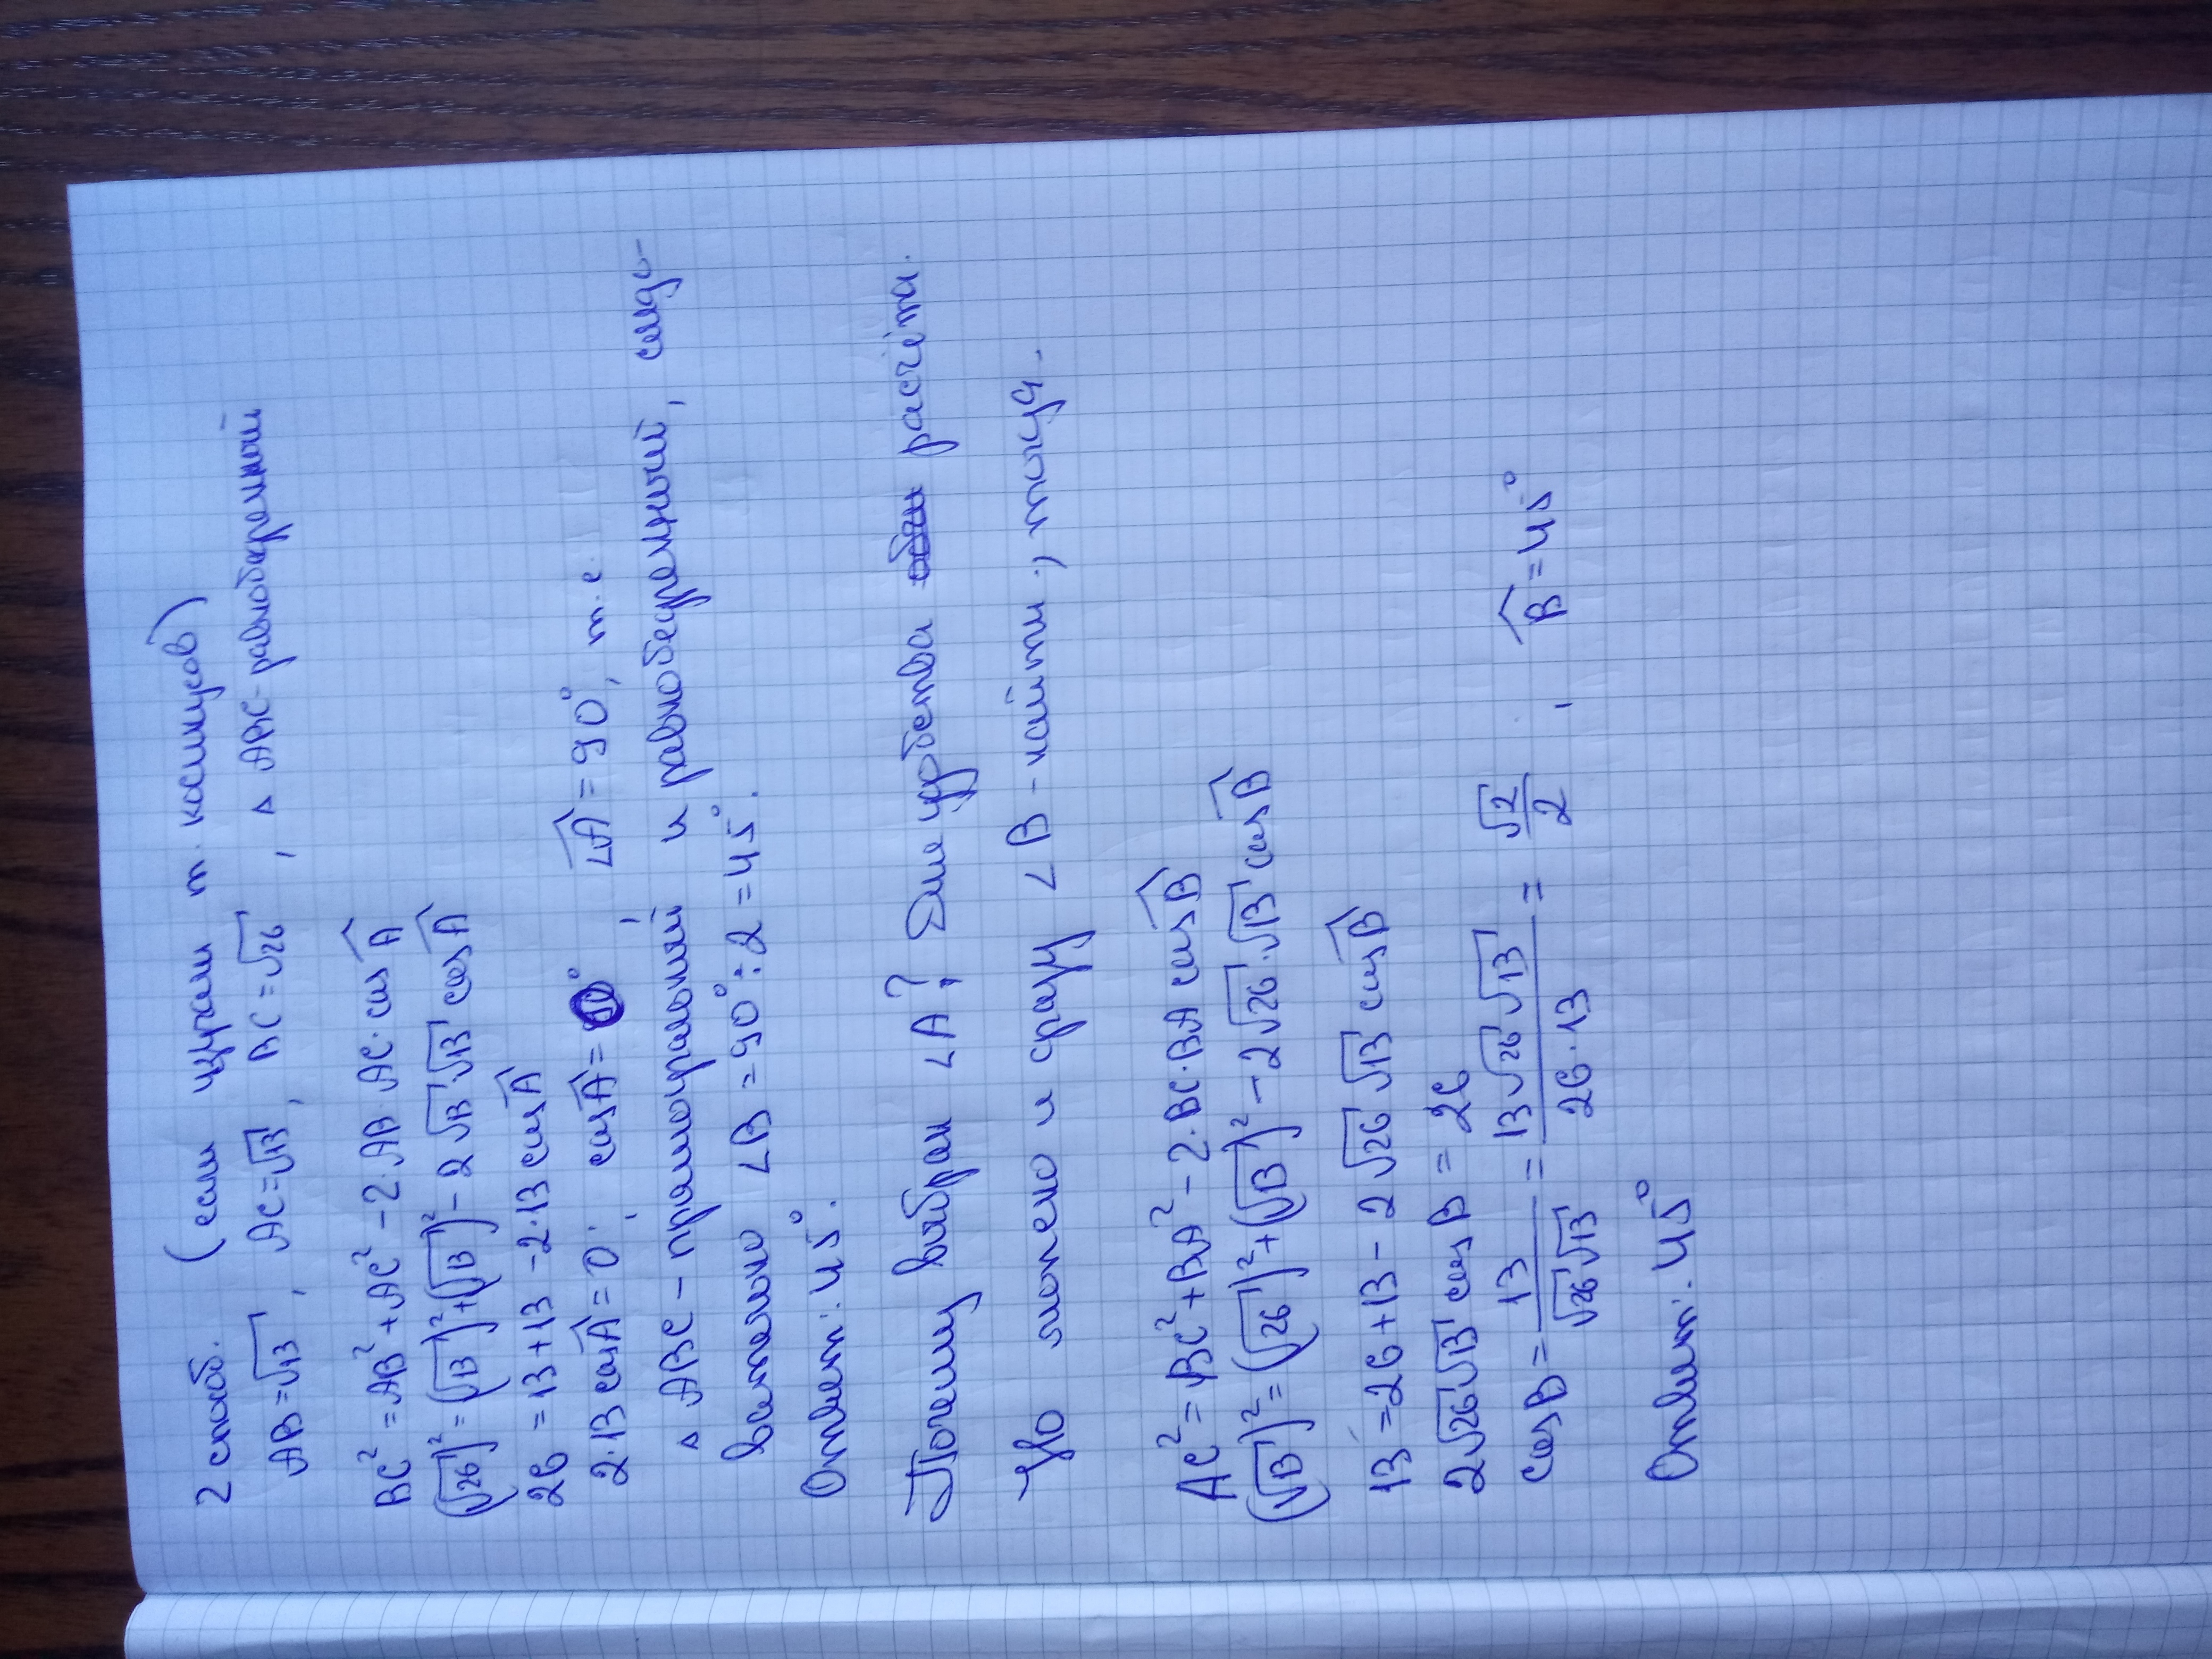 2 способ. (если изучали т. косинусов)
AB = √13, AC = √13, BC = √26, △ ABC - равнобедренный
BC² = AB² + AC² - 2·AB·AC·cos A
(√26)² = (√13)² + (√13)² - 2 √13·√13 cos A
26 = 13 + 13 - 2·13 cos A
2·13 cos A = 0; cos A = 0, ∠A = 90°, т.е.
△ ABC - прямоугольный и равнобедренный, следо-
вательно ∠B = 90° : 2 = 45°.
Ответ: 45°.
Почему выбран ∠A? Для удобства расчёта.
Но можно и сразу ∠B - найти; тогда.
AC² = BC² + BA² - 2·BC·BA cos B
(√13)² = (√26)² + (√13)² - 2√26·√13 cos B
13 = 26 + 13 - 2 √26 √13 cos B
2√26 √13 cos B = 26
cos B = 13/(√26 √13) = (13 √26 √13)/(26·13) = √2/2, B = 45°
Ответ: 45°